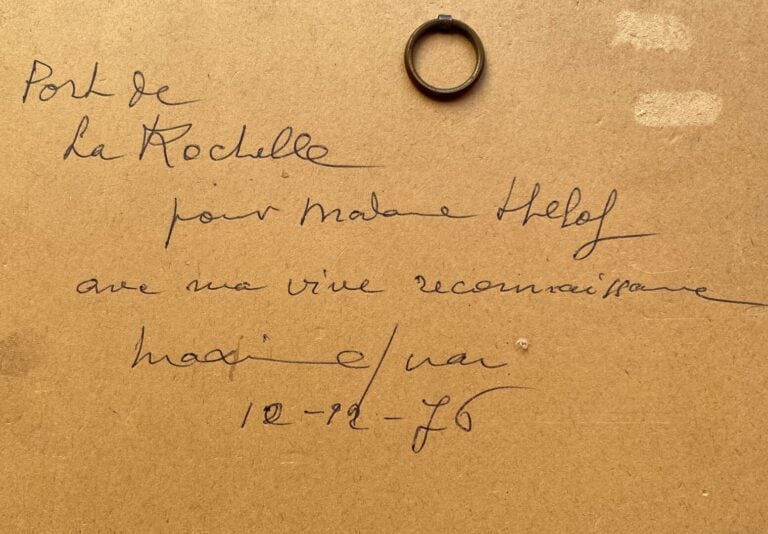 Port de
La Rochelle
pour Madame
avec ma vive reconnaissance
Maxime Juan
12-12-76